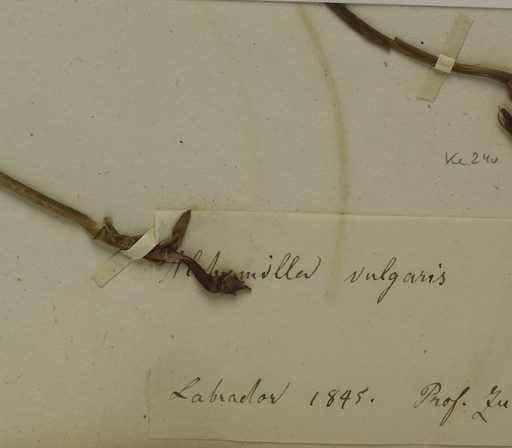 Alchemilla vulgaris
Labrador 1845. Prof.